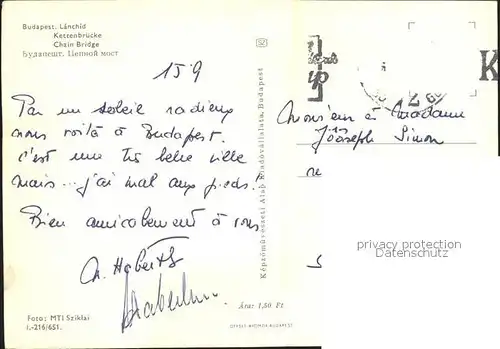 Budapest. Lánchíd
Kettenbrücke
Chain Bridge
Будапешт. Цепной мост
15 9
Par un soleil radieux
nous voilà à Budapest.
c'est une très belle ville
mais... j'ai mal aux pieds!
Bien amicalement à vous
Foto: MTI Sziklai
I.-216/651.
Képzőművészeti Alap Kiadóvállalata, Budapest
Ára: 1,50 Ft
OFFSET-NYOMDA BUDAPEST
K
Monsieur et Madame
Joseph Simon
privacy protection
Datenschutz